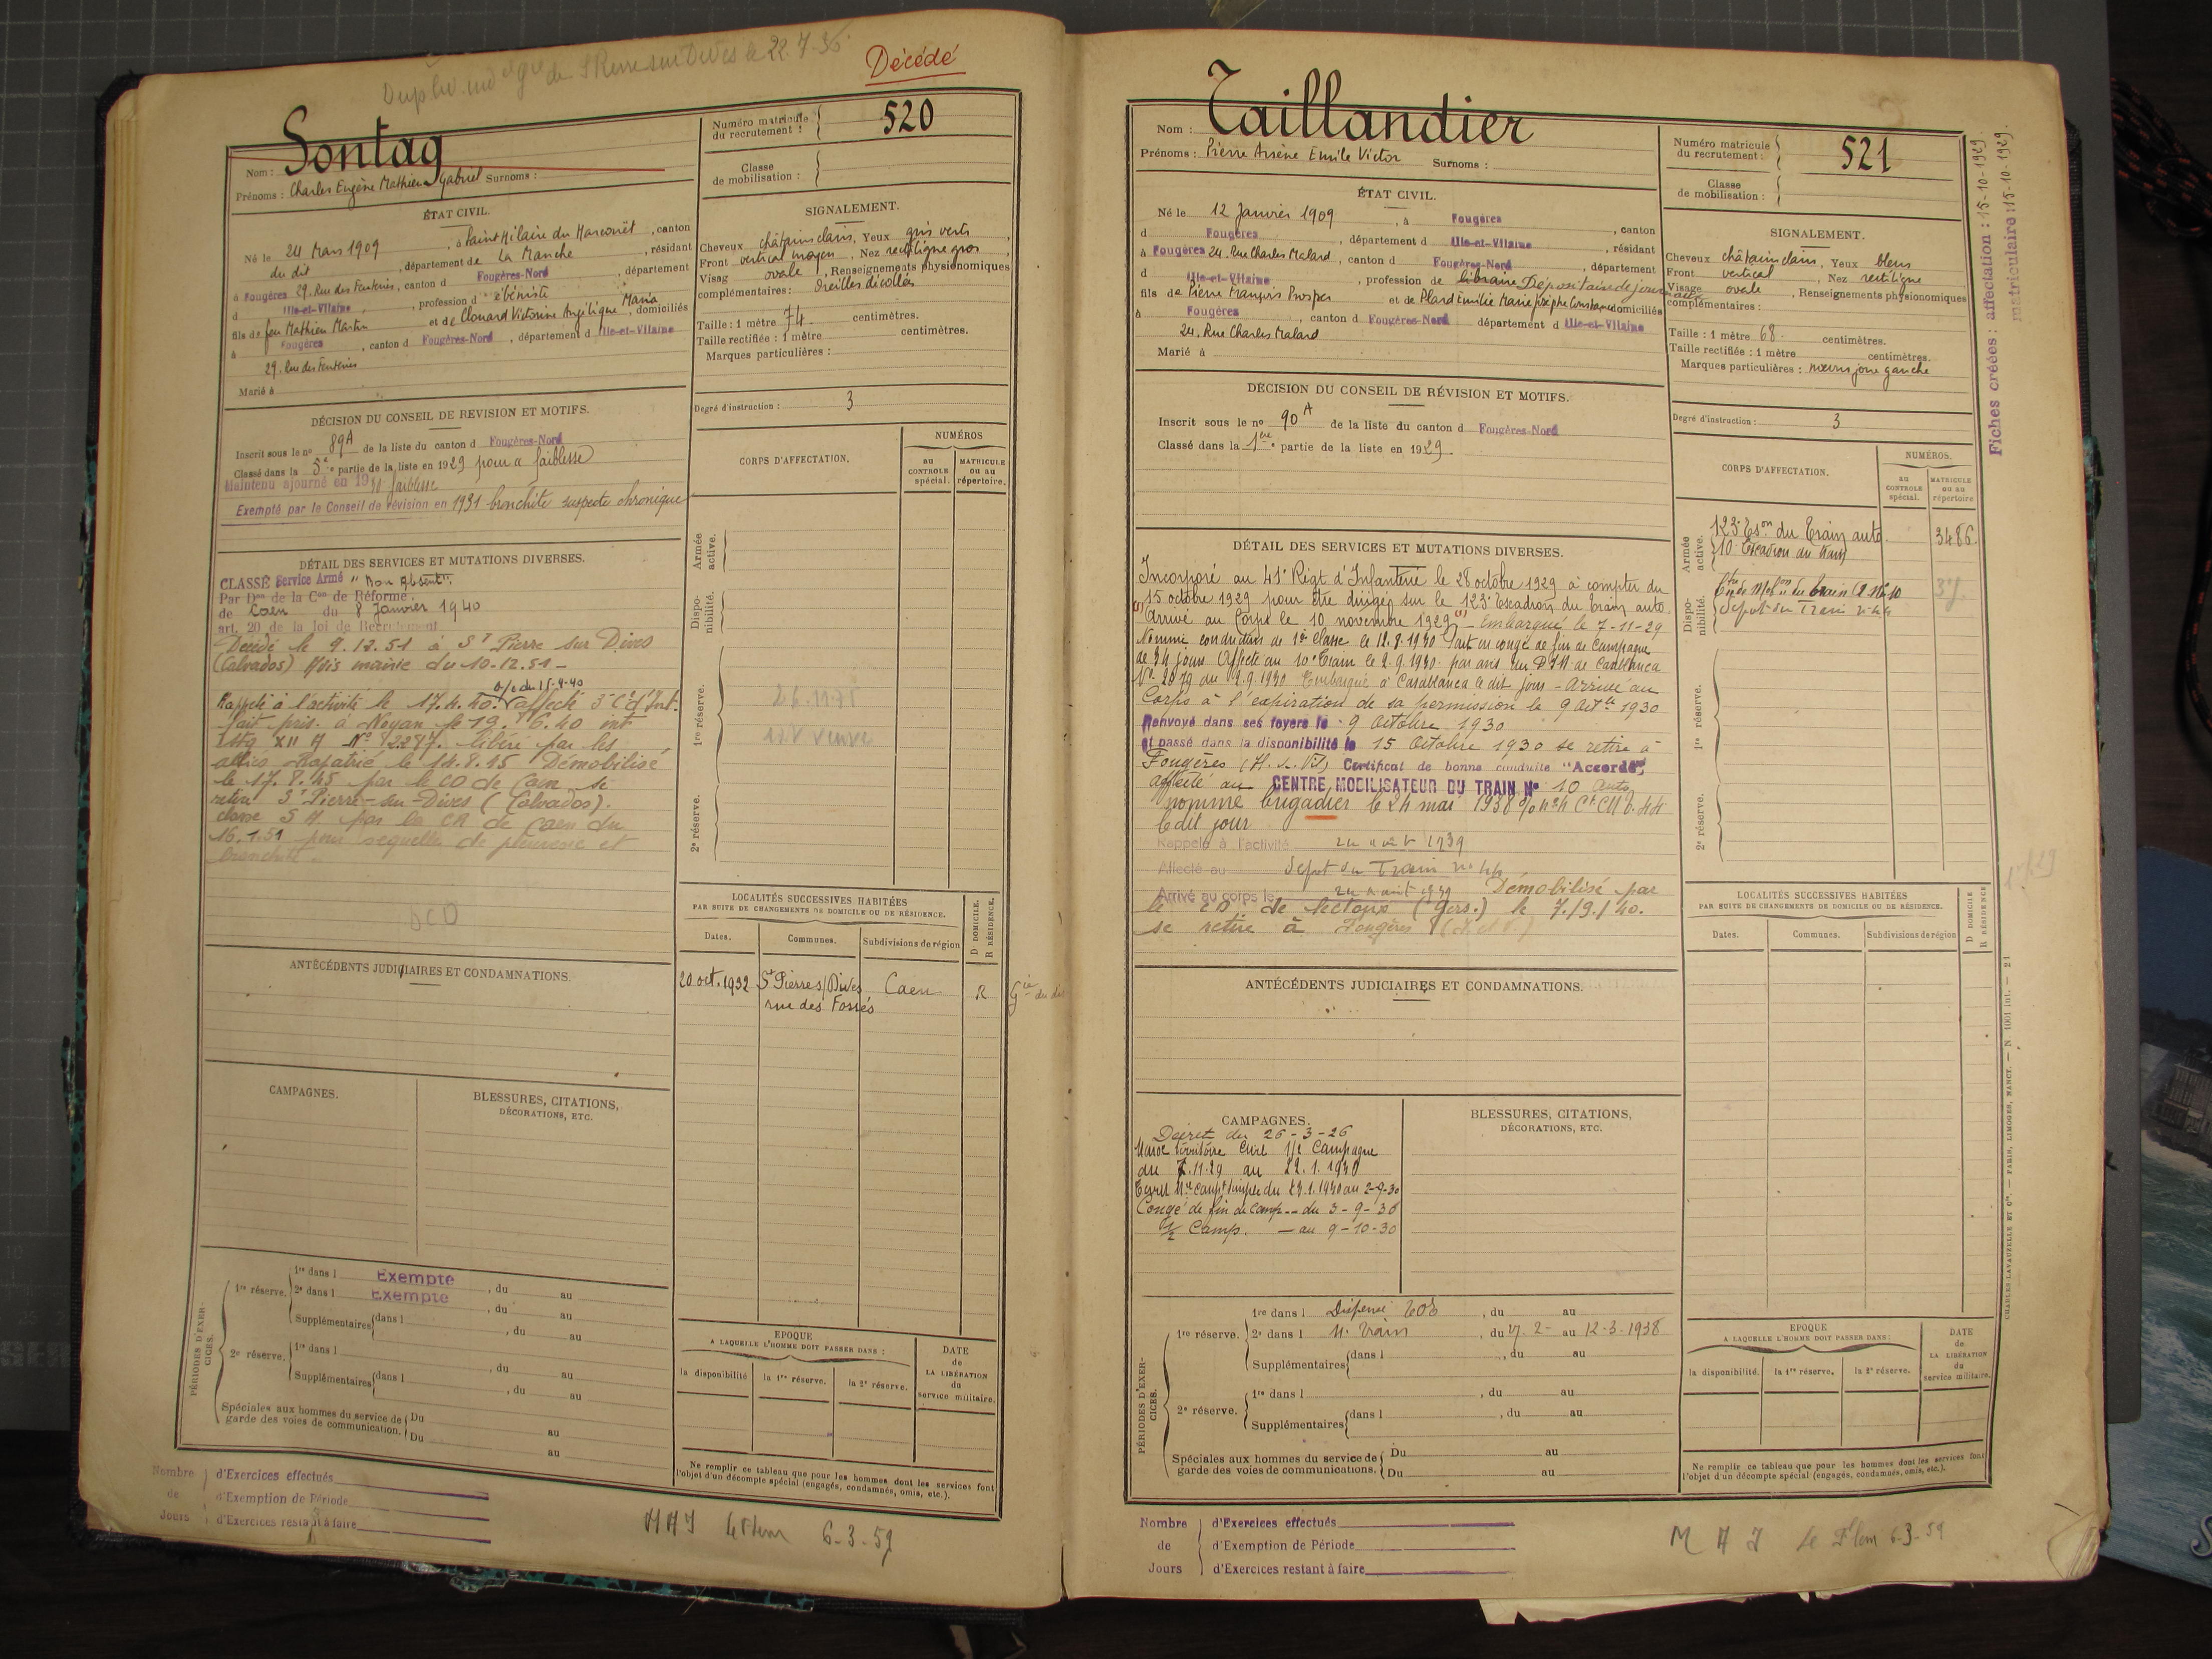 Décédé
Nom : Sontag
Prénoms : Charles Eugène Mathieu Gabriel Surnoms :
Numéro matricule du recrutement : 520
Classe de mobilisation :
ÉTAT CIVIL.
Né le 24 Mars 1909, à Saint Hilaire du Harcouët, canton
du dit, département de La Manche, résidant
à Fougères 29. Rue des Feuteries, canton d Fougères-Nord, département
d Ille-et-Vilaine, profession d ébéniste
fils de feu Mathieu Martin et de Clouard Victorine Angélique Maria, domiciliés
à Fougères, canton d Fougères-Nord, département d Ille-et-Vilaine
29. Rue des Feuteries
Marié à
SIGNALEMENT.
Cheveux châtains clairs, Yeux gris verts
Front vertical moyen, Nez rectiligne gros
Visag ovale, Renseignements physionomiques
complémentaires : Oreilles décollées
Taille : 1 mètre 74 centimètres.
Taille rectifiée : 1 mètre centimètres.
Marques particulières :
Degré d'instruction : 3
DÉCISION DU CONSEIL DE REVISION ET MOTIFS.
Inscrit sous le no 89A de la liste du canton d Fougères-Nord
Classé dans la 5e partie de la liste en 1929 pour a faiblesse
Maintenu ajourné en 1930 faiblesse
Exempté par le Conseil de révision en 1931 bronchite suspecte chronique
DÉTAIL DES SERVICES ET MUTATIONS DIVERSES.
CLASSÉ Service Armé "Bon Absent".
Par Don de la Con de Réforme.
de Caen du 8 Janvier 1940
art. 20 de la loi de Recrutement
Décédé le 9.12.51 à St Pierre sur Dives
(Calvados) Avis mairie du 10-12.51 -
Rappelé à l'activité le 17.4.40.
fait pris. à Noyan le 19.6.40 int
Stag XII A No libéré par les
alliés Rapatrié le 14.8.45 Démobilisé
le 17.8.45 par le CD de Caen se
retire St Pierre-sur-Dives (Calvados).
classé S A par la CR de Caen du
16.1.51 pour sequelles de pleuresie et
bronchite.
DCD
CORPS D'AFFECTATION.
NUMÉROS
au CONTROLE spécial.
MATRICULE ou au répertoire.
Armée active.
Disponibilité.
1re réserve.
2e réserve.
LOCALITÉS SUCCESSIVES HABITÉES
PAR SUITE DE CHANGEMENTS DE DOMICILE OU DE RÉSIDENCE.
Dates. Communes. Subdivisions de région
D DOMICILE. R RÉSIDENCE.
20 oct. 1932 St Pierre s/Dives Caen R
rue des Fossés
ANTÉCÉDENTS JUDICIAIRES ET CONDAMNATIONS.
CAMPAGNES.
BLESSURES, CITATIONS,
DÉCORATIONS, ETC.
PÉRIODES D'EXERCICES.
1re réserve. 1re dans l Exempte, du au
2e dans l Exempte, du au
Supplémentaires dans l, du au
2e réserve. 1re dans l, du au
Supplémentaires dans l, du au
Spéciales aux hommes du service de garde des voies de communication. Du au
Du au
EPOQUE
A LAQUELLE L'HOMME DOIT PASSER DANS :
la disponibilité la 1re réserve. la 2e réserve.
DATE de LA LIBÉRATION du service militaire.
Ne remplir ce tableau que pour les hommes dont les services font
l'objet d'un décompte spécial (engagés, condamnés, omis, etc.).
Nombre de Jours
d'Exercices effectués
d'Exemption de Période
d'Exercices restant à faire
MAJ 6-3-59
Nom : Taillandier
Prénoms : Pierre Arsène Emile Victor Surnoms :
Numéro matricule du recrutement : 521
Classe de mobilisation :
ÉTAT CIVIL.
Né le 12 Janvier 1909, à Fougères, canton
d Fougères, département d Ille-et-Vilaine, résidant
à Fougères 24. Rue Charles Malard, canton d Fougères-Nord, département
d Ille-et-Vilaine, profession de libraire Dépositaire de journaux
fils de Pierre François Prosper et de Plard Emilie Marie Josèphe Constance domiciliés
à Fougères, canton d Fougères-Nord département d Ille-et-Vilaine
24. Rue Charles Malard
Marié à
SIGNALEMENT.
Cheveux châtains clairs, Yeux bleus
Front vertical, Nez rectiligne
Visage ovale, Renseignements physionomiques
complémentaires :
Taille : 1 mètre 68 centimètres.
Taille rectifiée : 1 mètre centimètres.
Marques particulières : nævus joue gauche
Degré d'instruction : 3
Fiches créées : affectation : 15-10-1929
matriculaire : 15-10-1929.
DÉCISION DU CONSEIL DE RÉVISION ET MOTIFS.
Inscrit sous le no 90A de la liste du canton d Fougères-Nord
Classé dans la 1ère partie de la liste en 1929.
DÉTAIL DES SERVICES ET MUTATIONS DIVERSES.
Incorporé au 41e Régt d'Infanterie le 28 octobre 1929 à compter du
15 octobre 1929 pour être dirigé sur le 123e Escadron du Train auto.
Arrivé au Corps le 10 novembre 1929 - Embarqué le 7-11-29
Nommé conducteur de 1ère classe le 12.8.1930 Part en congé de fin de Campagne
de 34 jours Affecté au 10e Train le 2.9.1930. par avis du D.I.M. de Casablanca
No 2079 du 2.9.1930 Embarqué à Casablanca le dit jour - Arrivé au
Corps à l'expiration de sa permission le 9 Octbre 1930
Renvoyé dans ses foyers le 9 Octobre 1930
et passé dans la disponibilité le 15 Octobre 1930 se retire à
Fougères (I.-&-Vil) Certificat de bonne conduite "Accordé"
affecté au CENTRE MOBILISATEUR DU TRAIN No 10 Auto
nommé brigadier le 24 mai 1938
le dit jour
Rappelé à l'activité 24 août 1939
Affecté au Dépôt du Train no 44
Arrivé au corps le 24 août 1939 Démobilisé par
le CD. de Lectoure (Gers.) le 7/9/40.
se retire à Fougères (I. et V.)
CORPS D'AFFECTATION.
NUMÉROS.
au CONTROLE spécial.
MATRICULE ou au répertoire
Armée active. 123e Eson du Train auto. 3486.
10e Escadron du train
Disponibilité.
Dépôt du Train no 44
1re réserve.
2e réserve.
LOCALITÉS SUCCESSIVES HABITÉES
PAR SUITE DE CHANGEMENTS DE DOMICILE OU DE RÉSIDENCE.
Dates. Communes. Subdivisions de région
D DOMICILE R RÉSIDENCE
ANTÉCÉDENTS JUDICIAIRES ET CONDAMNATIONS.
CAMPAGNES.
Décret du 26-3-26
Maroc territoire Civil 1/2 Campagne
du 7.11.29 au 22.1.1930
du 23.1.1930 au 2-9-30
Congé de fin de Camp -- du 3-9-30
1/2 Camp. - au 9-10-30
BLESSURES, CITATIONS,
DÉCORATIONS, ETC.
PÉRIODES D'EXERCICES.
1re réserve. 1re dans l Dispensé, du au
2e dans l Train, du 2- au 12-3-1938
Supplémentaires dans l, du au
2e réserve. 1re dans l, du au
Supplémentaires dans l, du au
Spéciales aux hommes du service de garde des voies de communications. Du au
Du au
EPOQUE
A LAQUELLE L'HOMME DOIT PASSER DANS :
la disponibilité. la 1re réserve. la 2e réserve.
DATE de LA LIBÉRATION du service militaire.
Ne remplir ce tableau que pour les hommes dont les services font
l'objet d'un décompte spécial (engagés, condamnés, omis, etc.).
CHARLES-LAVAUZELLE ET Cie. — PARIS, LIMOGES, NANCY.
Nombre de Jours
d'Exercices effectués
d'Exemption de Période
d'Exercices restant à faire
MAJ 6-3-59